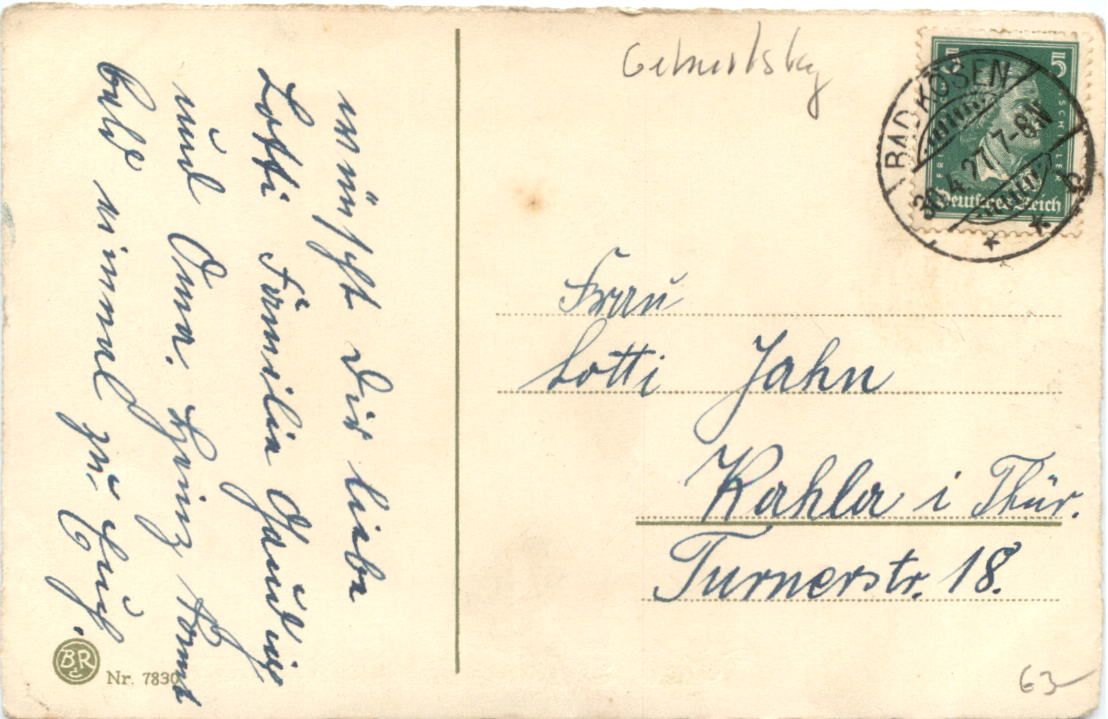 wünscht Dir liebe
Lotti Familie
und Oma. Heinz kommt
bald einmal zu Euch.
Geburtskg
5 5
Deutsches Reich
BAD KÖSEN
30.4.27. 7-8N
Frau
Lotti Jahn
Kahla i Thür.
Turnerstr. 18.
BR
Nr. 7830
63